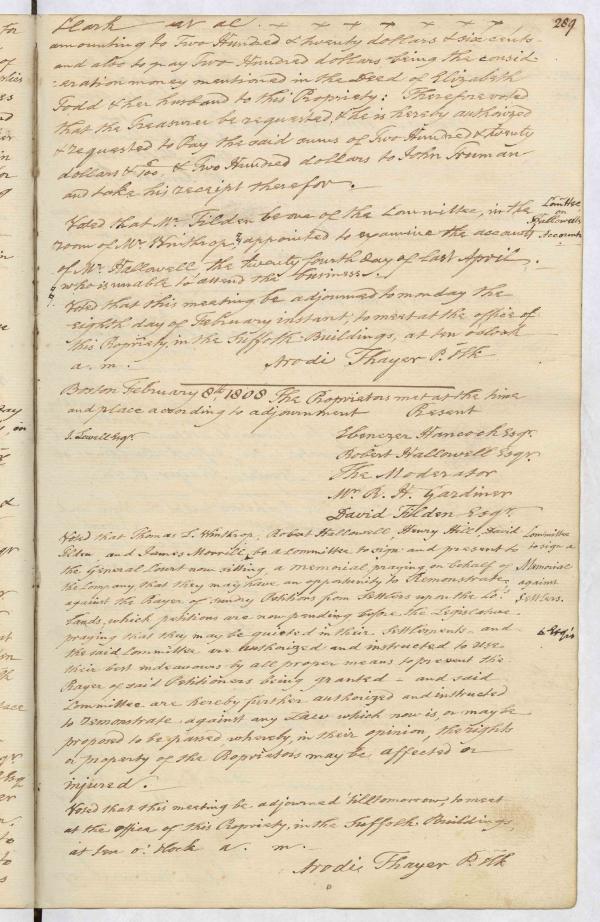 289
Clark et al. x x x x x x x
amounting to Two Hundred & twenty dollars & six cents
and also to pay Two Hundred dollars being the consid
eration money mentioned in the Deed of Elizabeth
Todd & her husband to this Propriety: Therefore voted
that the Treasurer be requested, & he is hereby authorized
& requested to Pay the said sums of Two Hundred & twenty
dollars & & Two Hundred dollars to John Truman
and take his receipt therefor.
Voted that Mr. Tilden be one of the Committee, in the
room of Mr. Winthrop, appointed to examine the accounts
of Mr. Hallowell the twenty fourth day of last April.
who is unable to attend the business.
Comttee
on
Hallowells
Accounts
Voted that this meeting be adjourned to monday the
eighth day of February instant, to meet at the office of
this Propriety, in the Suffolk Buildings, at ten o'Clock
a. m.
Arodi Thayer P. Clk
Boston February 8th 1808 The Proprietors met at the time
and place according to adjournment Present
J. Lowell Esqr.
Ebenezer Hancock Esqr.
Robert Hallowell Esqr.
The Moderator
Mr. R. H. Gardiner
David Tilden Esqr.
Voted that Thomas L. Winthrop, Robert Hallowell, Henry Hill, David
Tilden, and James Morrill, be a Committee to sign and present to
the General Court now sitting, a memorial praying on behalf of
the Company that they may have an opportunity to Remonstrate
against the Prayer of sundry Petitions from Settlers upon the Co.
Lands, which petitions are now pending before the Legislative
praying that they may be quieted in their Settlements - and
the said Committee are authorized and instructed to use
their best endeavours by all proper means to prevent the
Prayer of said Petitioners being granted - and said
Committee are hereby further authorized and instructed
to remonstrate against any Law which now is, or may be
proposed to be passed whereby, in their opinion, the rights
or property of the Proprietors may be affected or
injured.
Committee
to sign a
Memorial
against
Settlers.
Esqrs
Voted that this meeting be adjourned till tomorrow, to meet
at the office of this Propriety, in the Suffolk Buildings,
at ten o'Clock a. m.
Arodi Thayer P. Clk